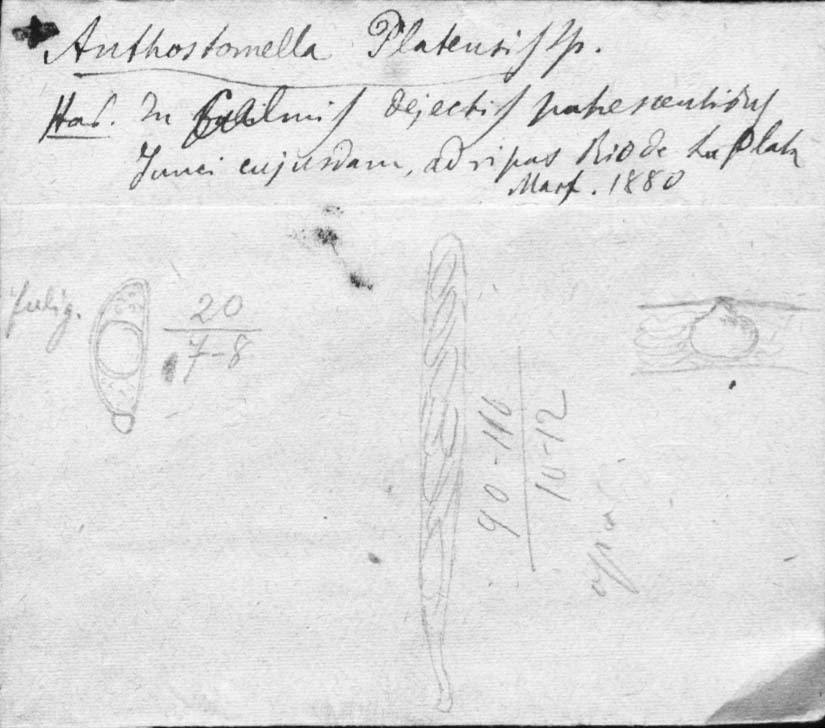 Anthostomella Platensis Sp.
Hab. In Culmis dejectis putrescentibus
Junci cujusdam, ad ripas Rio de La Plata
Mart. 1880
fulig.
20
7-8
90-110
10-12